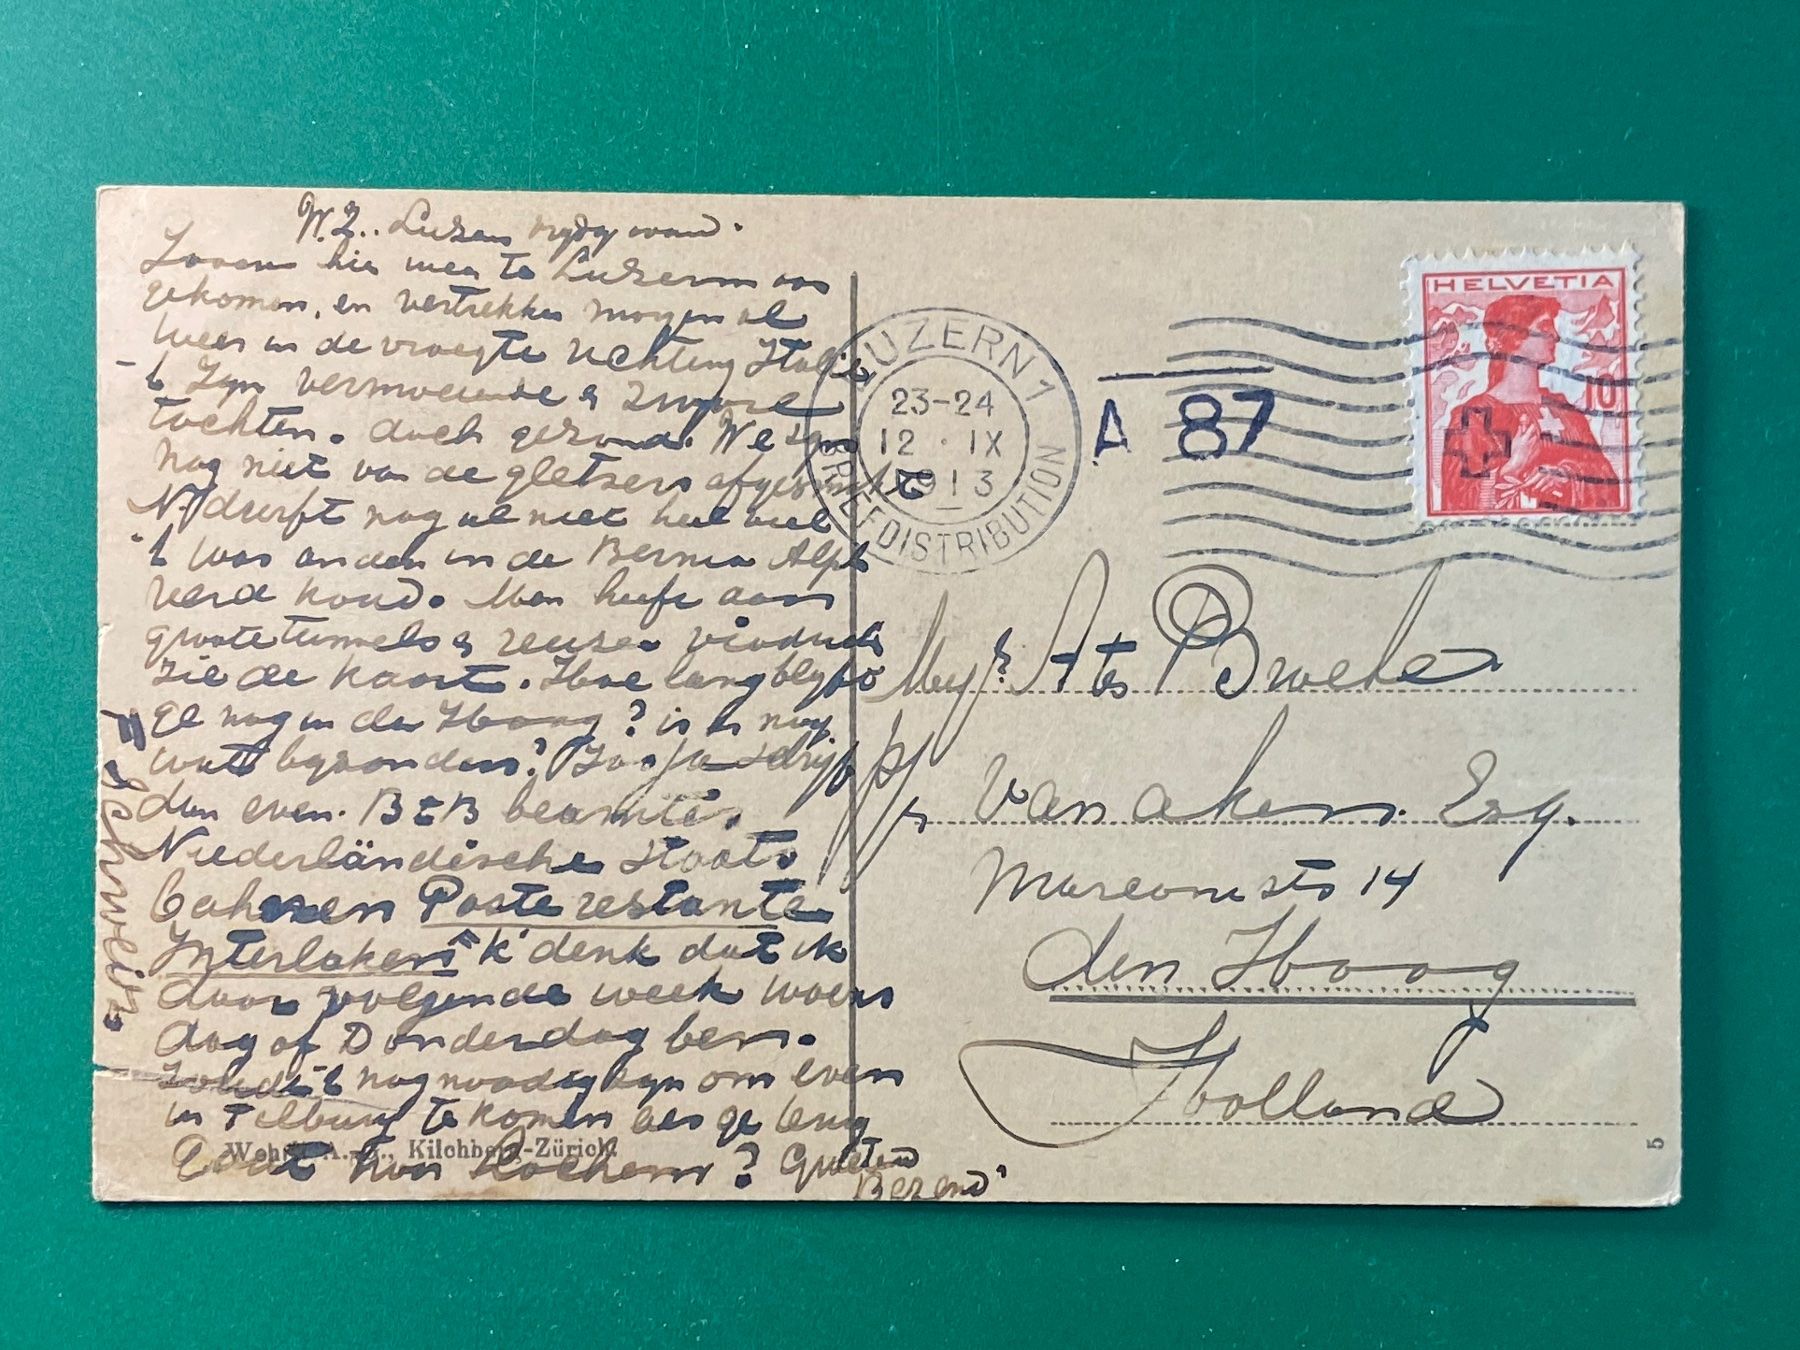 W.Z.. Luzern vrijdag avond.
Zooven hier weer te Luzern aan
gekomen, en vertrekken morgen al
weer in de vroegte richting Italie
't Zijn vermoeiende & zware
tochten. doch gezond. We zijn
nog niet van de gletsers afgesmakt
N. durft nog al niet heel veel
't was anders in de Bernia Alph
zeer koud. Men heeft daar
groote tunnels & reuzen viaducts
zie de kaart. Hoe lang blijft
ge nog in den Haag? is er nog
wat byzonders? Zoo ja schrijf
dan even. B & B beamte.
Niederländische Staats
bahnen Poste restante
Interlaken 'k denk dat ik
daar volgende week woens
dag of Donderdag ben.
Zoudt nog noodig zijn om even
in Tilburg te komen als ge terug
gaat hoor Lochem? Groeten
Berend
Schweitz
LUZERN 1
23-24
12 · IX
1913
BRIEFDISTRIBUTION
A 87
HELVETIA
10
Mej. Ats Broeke
p/a van aken. Esq.
Marconistr 14
den Haag
Holland
Wehrli A.-G., Kilchberg-Zürich.
5